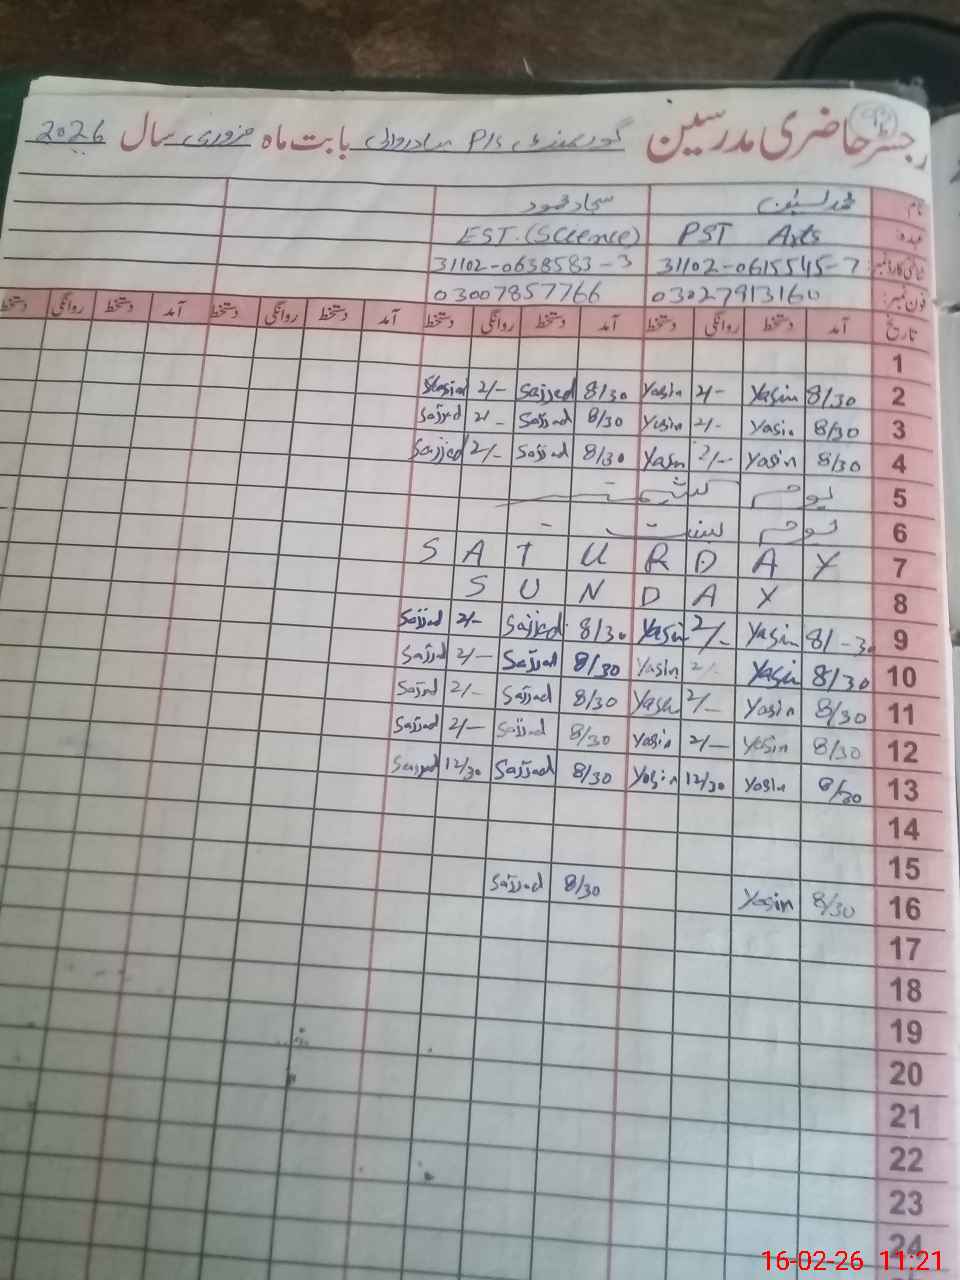 رجسٹر حاضری مدرسین گورنمنٹ P/s بابت ماہ فروری سال 2026
نام محمد یٰسین سجاد محمود
عہدہ PST Arts EST.(Science)
شناختی کارڈ نمبر 31102-0615545-7 31102-0638583-3
فون نمبر: 03027913160 03007857766
تاریخ آمد دستخط روانگی دستخط آمد دستخط روانگی دستخط آمد دستخط روانگی دستخط آمد دستخط روانگی دستخط
1
2 8/30 Yasin 2/- Yasin 8/30 Sajjad 2/-
3 8/30 Yasin 2/- Yasin 8/30 Sajjad 2/- Sajjad
4 8/30 Yasin 2/- Yasin 8/30 Sajjad 2/- Sajjad
5 یوم کشمیر
6 یوم بسنت
7 SATURDAY
8 SUNDAY
9 8/-30 Yasin 2/- Yasin 8/30 Sajjad 2/- Sajjad
10 8/30 Yasin 2/- Yasin 8/30 Sajjad 2/- Sajjad
11 8/30 Yasin 2/- Yasin 8/30 Sajjad 2/- Sajjad
12 8/30 Yasin 2/- Yasin 8/30 Sajjad 2/- Sajjad
13 8/30 Yasin 12/30 Yasin 8/30 Sajjad 12/30 Sajjad
14
15
16 8/30 Yasin 8/30 Sajjad
17
18
19
20
21
22
23
24
16-02-26 11:21